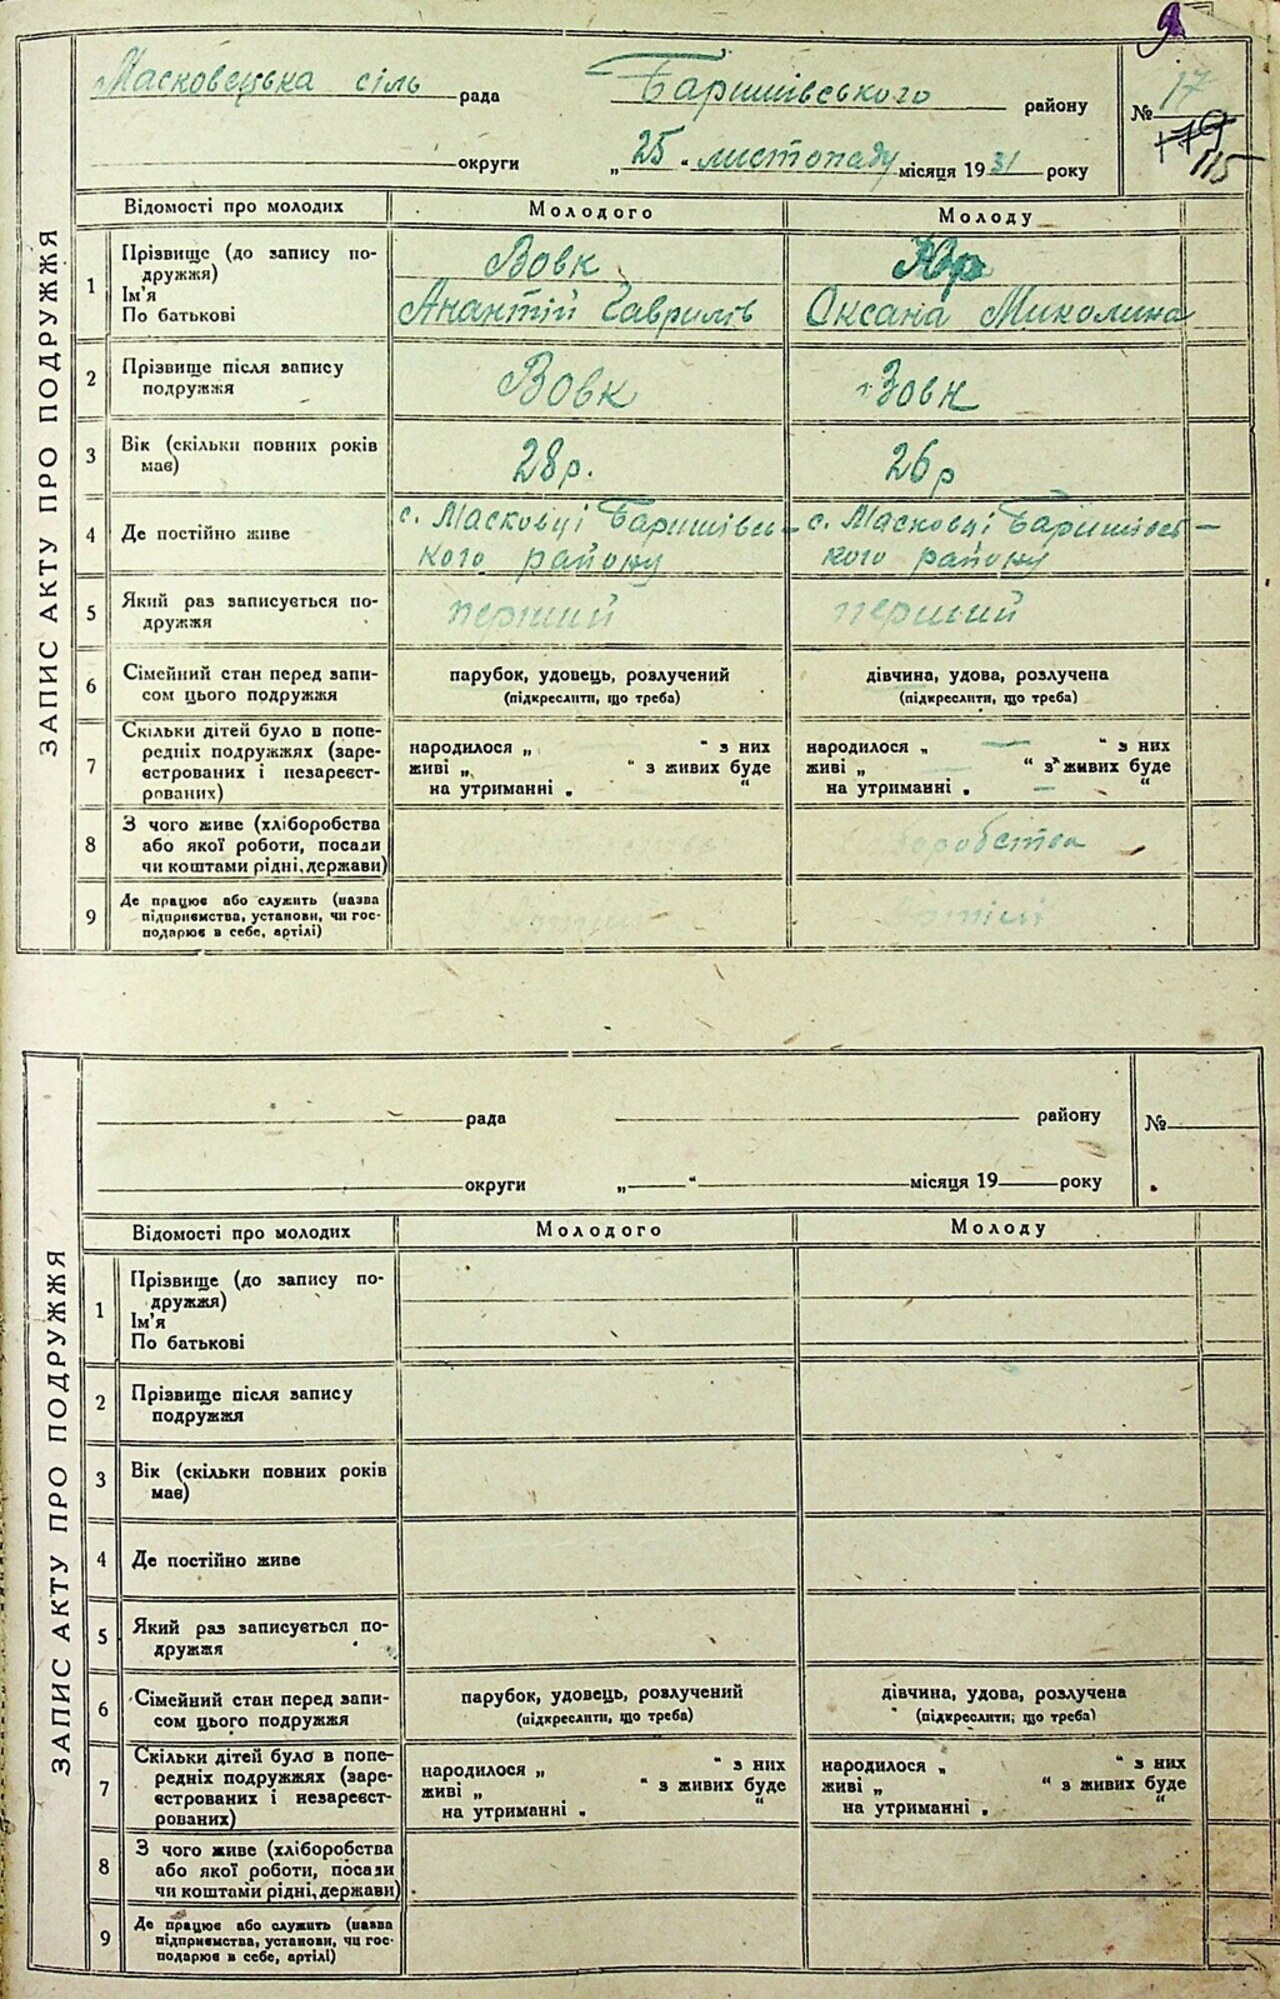 9
Масковецька сіль рада Баришівського району № 17
179
115
округи „25“ листопаду місяця 1931 року
ЗАПИС АКТУ ПРО ПОДРУЖЖЯ
Відомості про молодих Молодого Молоду
1 Прізвище (до запису по-
дружжя) Вовк
Ім'я
По батькові Анантій Гаврилів Оксана Миколина
2 Прізвище після запису
подружжя Вовк Вовк
3 Вік (скільки повних років
має) 28р. 26р
4 Де постійно живе с. Масковці Баришівсь- с. Масковці Баришівсь-
кого району кого району
5 Який раз записується по-
дружжя перший перший
6 Сімейний стан перед запи-
сом цього подружжя
парубок, удовець, розлучений дівчина, удова, розлучена
(підкреслити, що треба) (підкреслити, що треба)
7 Скільки дітей було в попе-
редніх подружжях (заре-
єстрованих і незареєст-
рованих)
народилося „ “ з них народилося „ — “ з них
живі „ “ з живих буде живі „ — “ з живих буде
на утриманні „ “ на утриманні „ — “
8 З чого живе (хліборобства
або якої роботи, посади
чи коштами рідні, держави)
9 Де працює або служить (назва
підприємства, установи, чи гос-
подарює в себе, артілі) Артілі
ЗАПИС АКТУ ПРО ПОДРУЖЖЯ
рада району №
округи „ “ місяця 19 року
Відомості про молодих Молодого Молоду
1 Прізвище (до запису по-
дружжя)
Ім'я
По батькові
2 Прізвище після запису
подружжя
3 Вік (скільки повних років
має)
4 Де постійно живе
5 Який раз записується по-
дружжя
6 Сімейний стан перед запи-
сом цього подружжя
парубок, удовець, розлучений дівчина, удова, розлучена
(підкреслити, що треба) (підкреслити, що треба)
7 Скільки дітей було в попе-
редніх подружжях (заре-
єстрованих і незареєст-
рованих)
народилося „ “ з них народилося „ “ з них
живі „ “ з живих буде живі „ “ з живих буде
на утриманні „ “ на утриманні „ “
8 З чого живе (хліборобства
або якої роботи, посади
чи коштами рідні, держави)
9 Де працює або служить (назва
підприємства, установи, чи гос-
подарює в себе, артілі)